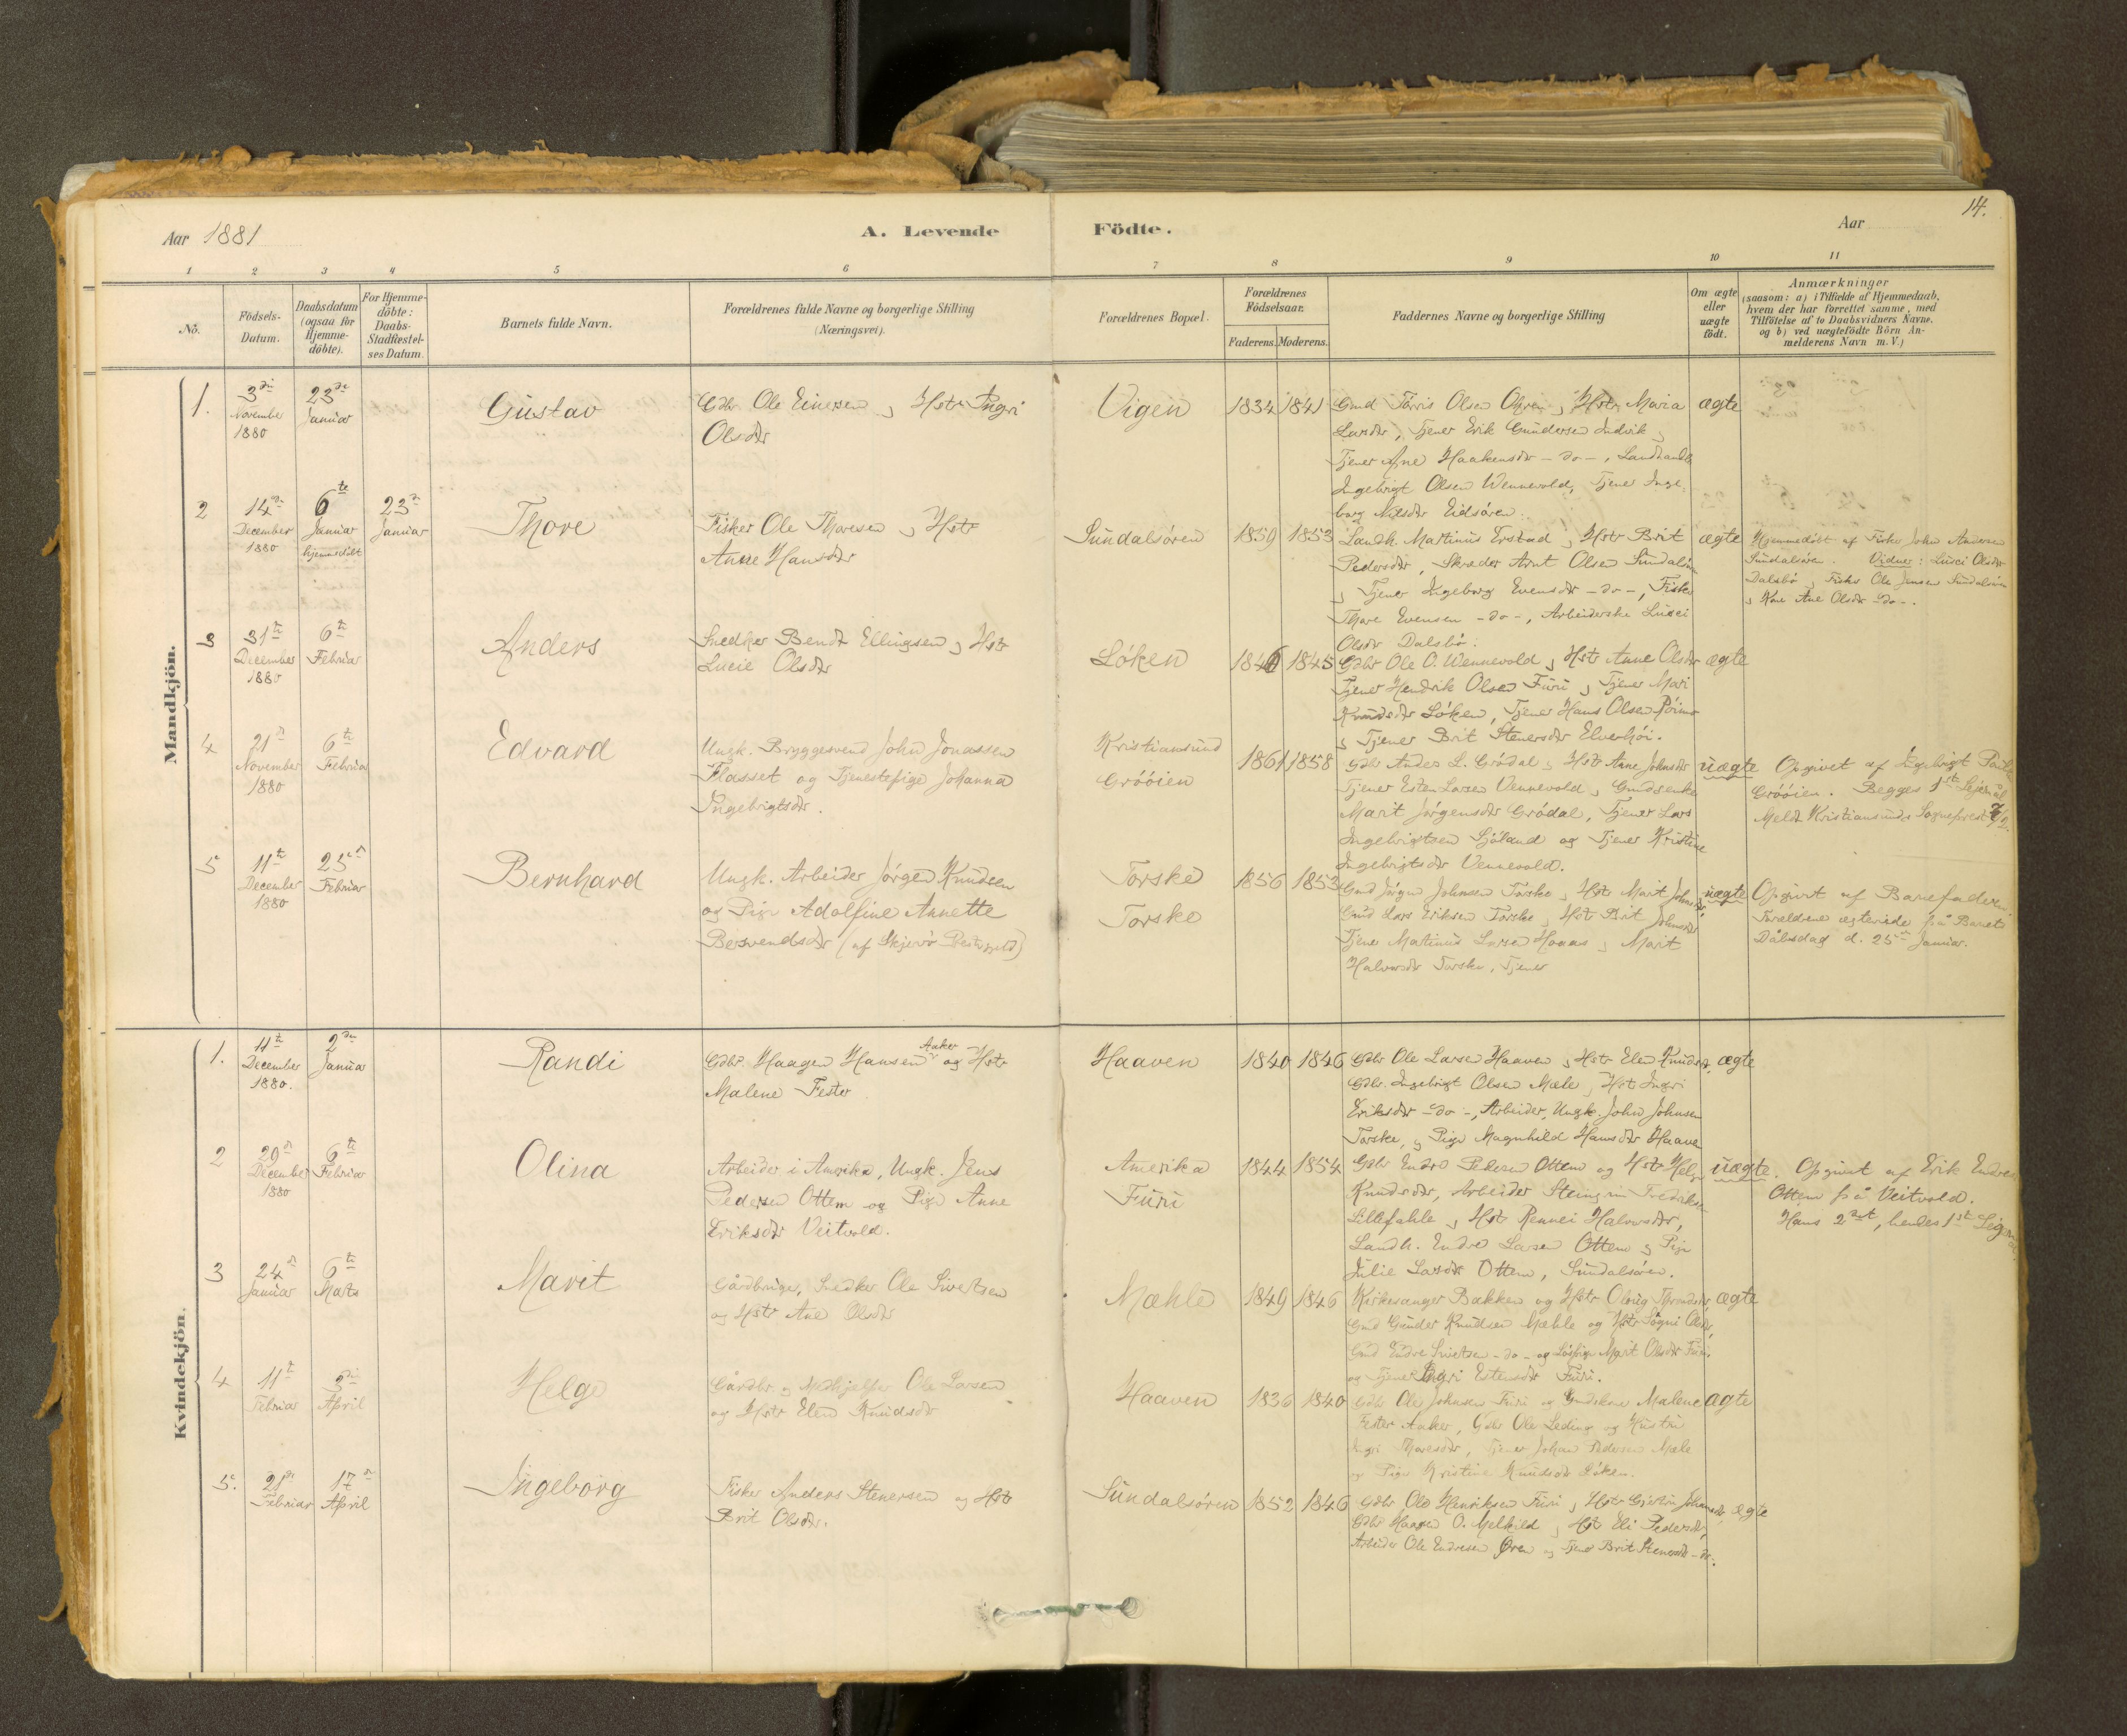 14.
Aar 1881
A. Levende Födte.
Aar
1 2 3 4 5 6 7 8 9 10 11
No.
Födsels-Datum.
Daabsdatum (ogsaa for Hjemme-döbte).
For Hjemme-döbte: Daabs-Stadfæstel-ses Datum.
Barnets fulde Navn.
Forældrenes fulde Navne og borgerlige Stilling
(Næringsvei).
Forældrenes Bopæl.
Forældrenes Födselsaar.
Faderens. Moderens.
Faddernes Navne og borgerlige Stilling
Om ægte eller uægte födt.
Anmærkninger
(saasom: a) i Tilfælde af Hjemmedaab,
hvem der har forrettet samme, med
Tilföielse af to Daabsvidners Navne.
og b) ved uægtefödte Börn An-
melderens Navn m. V.)
Mandkjön.
1.
3die November 1880
23de Januar
Gustav
Gdbr. Ole Einersen og Hstr Ingri
Olsdtr
Vigen
1834 1841
Gmd Torris Olsen , Hstr. Maria
Larsdtr, Tjener Erik Gundersen Indvik,
Tjener Ane Haakensdr - do -, Landhandl.
Ingebrigt Olsen Wennevold, Tjener Inge-
borg Nilsdtr Eidsören.
ægte
2
14de December 1880
6te Januar hjemmedöbt
23de Januar
Thore
Fisker Ole Thoresen og Hstr
Anne Hansdtr
Sundalsören
1859 1853
Landh. Martinus Erstad og Hstr Brit
Pedersdtr, Skræder Arnt Olsen Sundalsören
og Tjener Ingeborg Evensdtr - do -, Fisker
Thore Evensen - do -, Arbeiderske Lusei
Olsdtr Dalsbö.
ægte
Hjemmedöbt af Fisker John Andersen
Sundalsören. Vidner: Lusei Olsdtr
Dalsbö, Fisker Ole Jensen Sundalsören
og Kone Ane Olsdtr - do -.
3
31te December 1880
6te Februar
Anders
Snedker Bendt Ellingsen og Hstr
Lucie Olsdtr
Löken
1846 1845
Gdbr Ole O. Wennevold og Hstr Anne Olsdtr
Tjener Hendrik Olsen Furu og Tjener Mari
Knudsdtr Löken, Tjener Hans Olsen
og Tjener Brit Stenersdtr Elverhöi.
ægte
4
21de November 1880
6te Februar
Edvard
Ungk. Bryggesvend John Jonassen
Flasset og Tjenestepige Johanna
Ingebrigtsdtr.
Kristiansund
Gröóien
1861 1858
Gdbr Anders L. Grödal og Hstr Anne Johnsdtr
Tjener Esten Larsen Vennevold, Gmdsenke
Marit Jörgensdtr Grödal, Tjener Lars
Ingebrigtsen Sjöland og Tjener Kristine
Ingebrigtsdtr Vennevold.
uægte
Opgivet af Ingebrigt
Gröóien. Begges 1ste Leiermål
Meldt Kristiansunds Sogneprest 7/2.
5
11te December 1880
25de Februar
Bernhard
Ungk. Arbeider Jörgen Knudsen
og Pige Adolfine Annette
Bersvendsdtr (af Skjervö Prestegjeld)
Torske
Torske
1856 1853
Gmd Jörgen Johnsen Torske og Hstr Marit Johnsdtr,
Gmd Lars Eriksen Torske og Hstr Brit Johnsdtr
Tjener Martinus Larsen Hoaas og Marit
Halvorsdtr Torske, Tjener
uægte
Opgivet af Barnefaderen.
Forældrene ægteviede på Barnets
Dåbsdag d. 25de Januar.
Kvindekjön.
1.
11te December 1880.
2den Januar
Randi
Gdbr. Haagen Hansen Aaker og Hstr
Malene Fester
Haaven
1840 1846
Gdbr Ole Larsen Haaven og Hstr Elen Knudsdr,
Gdbr. Ingebrigt Olsen Mæle, Hstr Ingri
Eriksdtr - do -, Arbeider, Ungk. John Johnsen
Torske, og Pige Magnhild Hansdtr Haaven
ægte
2
29de December 1880
6te Februar
Olina
Arbeider i Amerika, Ungk. Jens
Pedersen Ottem og Pige Anne
Eriksdtr Veitvold.
Amerika
Furu
1844 1854
Gdbr Endre Pedersen Ottem og Hstr Helge
Knudsdtr, Arbeider Steingrim Fredriksen
Lillefahle og Hstr Rennei Halvorsdtr,
Landh. Endre Larsen Ottem og Pige
Julie Larsdtr Ottem, Sundalsören.
uægte.
Opgivet af Erik Endresen
Ottem på Veitvold.
Hans 2det, hendes 1ste Leiermål
3
24de Januar
6te Marts
Marit
Gårdbruger, Snedker Ole Sivertsen
og Hstr Ane Olsdtr
Mæhle
1849 1846
Kirkesanger Bakken og Hstr Olaug Throndsdtr,
Gmd Gunder Knudsen Mæhle og Hstr Sögni Olsdtr,
Gmd Endre Sivertsen - do - og Löspige Marit Olsdtr Furu
og Tjener Ingri Estensdtr Furu.
ægte
4
11te Februar
3die April
Helge
Gårdbr. og Medhjelper Ole Larsen
og Hstr Elen Knudsdtr
Haaven
1836 1840
Gdbr Ole Johnsen Furu og Gmdskone Malene
Fester Aaker, Gdbr Ole Leding og Hustru
Ingri Thoresdtr, Tjener Johan Pedersen Mæle
og Pige Kristine Knudsdtr Löken.
ægte
5.
21de Februar
17de April
Ingeborg
Fisker Anders Stenersen og Hstr
Brit Olsdtr.
Sundalsören
1852 1846
Gdbr Ole Henriksen Furu og Hstr Gjertru Johansdtr,
Gdbr Haagen O. Melkild og Hstr Eli Pedersdtr,
Arbeider Ole Endresen Øren og Tjener Brit Stenersdtr - do -.
ægte